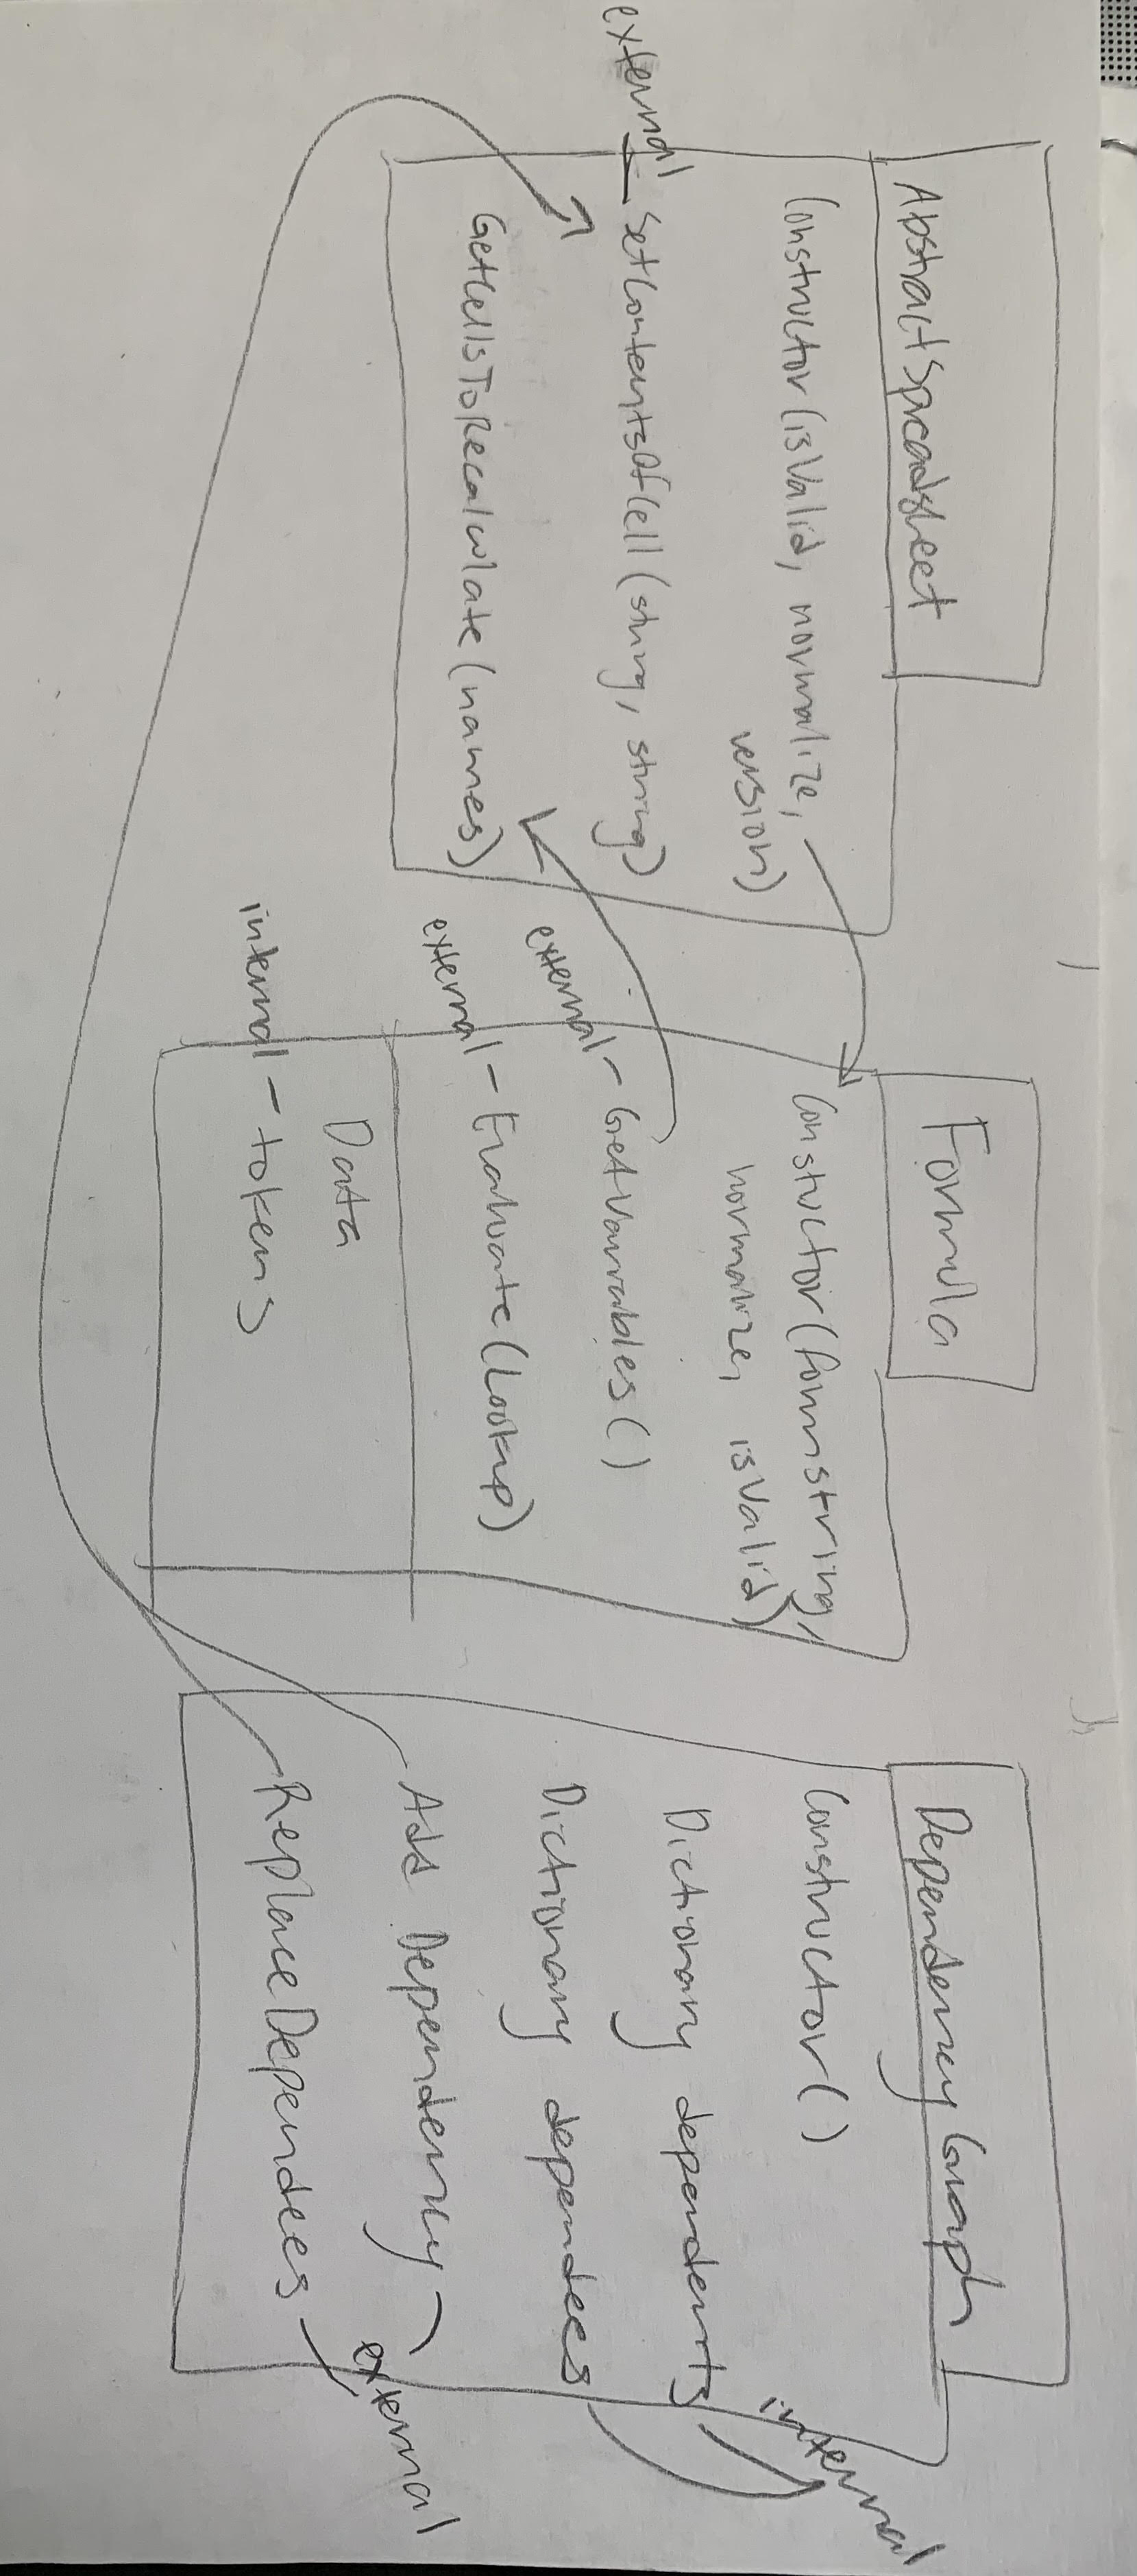 AbstractSpreadsheet
Constructor (isValid, normalize,
version)
external - SetContentsOfCell (string, string)
GetCellsToRecalculate (names)
Formula
Constuctor (formstring,
normalize, isValid)
external - GetVariables ()
external - Evaluate (Lookup)
Data
internal - tokens
Dependency Graph
Constructor ()
Dictionary dependents
internal
Dictionary dependees
Add Dependency
external
Replace Dependees